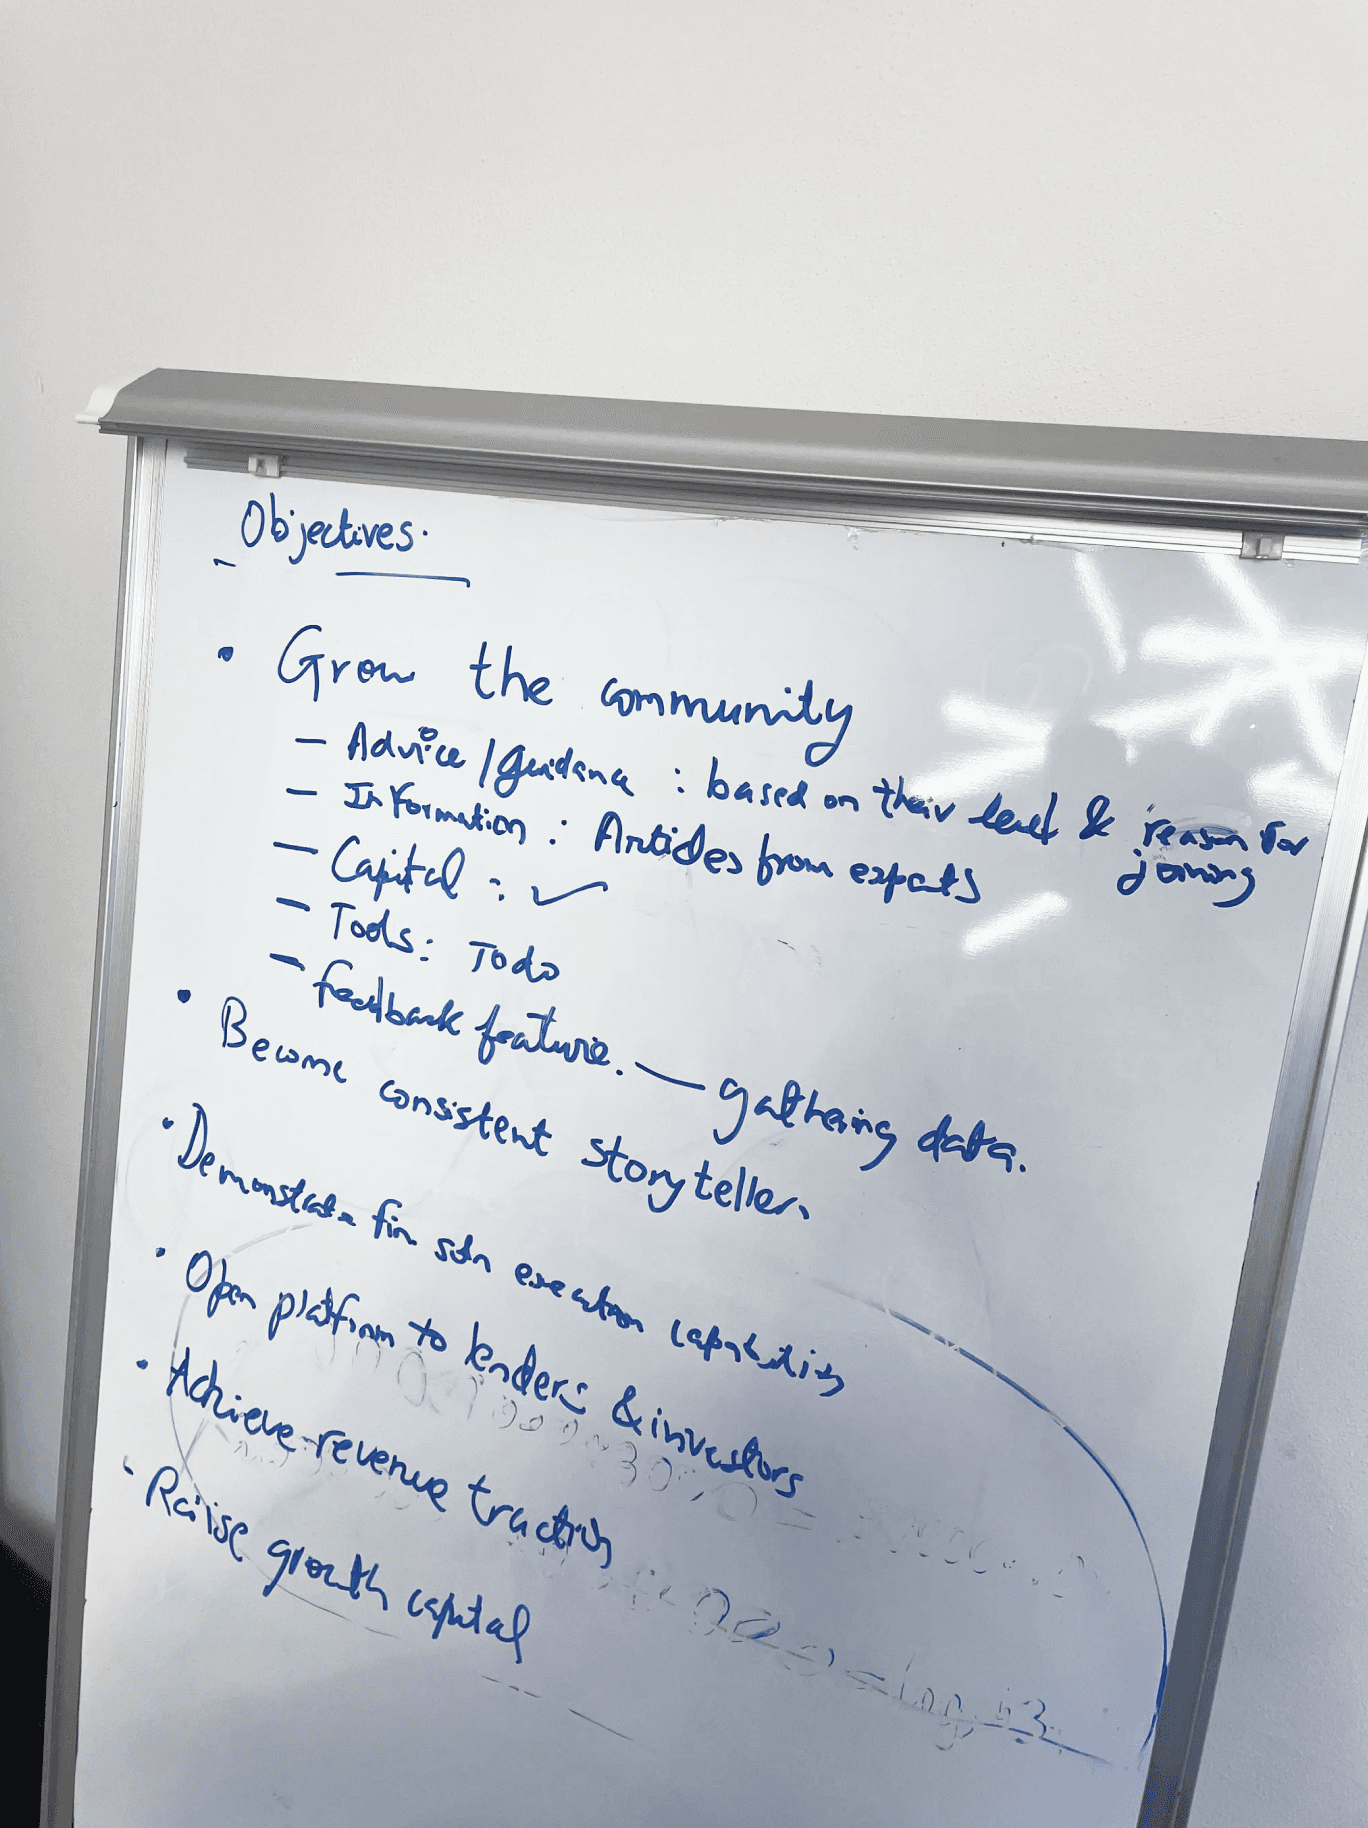 Objectives.
• Grow the community
– Advice/guidance : based on their level & reason for joining
– Information : Articles from experts
– Capital : ✓
– Tools: Todo
– feedback feature. — gathering data.
• Become consistent storyteller.
• Demonstrate fin soln execution capability
• Open platform to lenders & investors
• Achieve revenue traction
• Raise growth capital